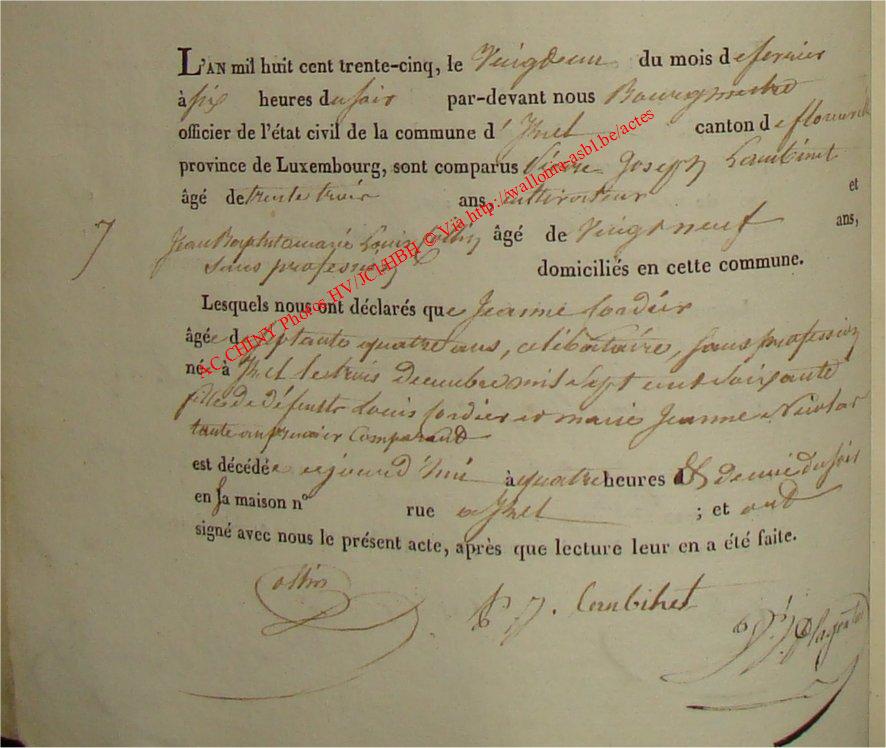 L'AN mil huit cent trente-cinq, le Vingdeux du mois de fevrier
à six heures du soir par-devant nous Bourgmestre
officier de l'état civil de la commune d'Iznel canton de florenville
province de Luxembourg, sont comparus Pierre Joseph Lambinet
âgé de trente trois ans, cultivateur et
7 Jean Louis Collin âgé de Vingt neuf ans,
Sans profession domiciliés en cette commune.
Lesquels nous ont déclarés que Jeanne Cordier
âgée de septante quatre ans, celibataire, Sans profession
née à Iznel le trois decembre mil Sept cent Soixante
fille de défunts Louis Cordier et marie Jeanne Nicolas
tante au premier Comparant
est décédée aujourd'hui à quatre heures & demie du soir
en sa maison n° rue a Iznel ; et ont
signé avec nous le présent acte, après que lecture leur en a été faite.
Collin P J. Lambinet
AC CHINY Photos HV/JCI-HBH © Via http://wallonia-asbl.be/actes